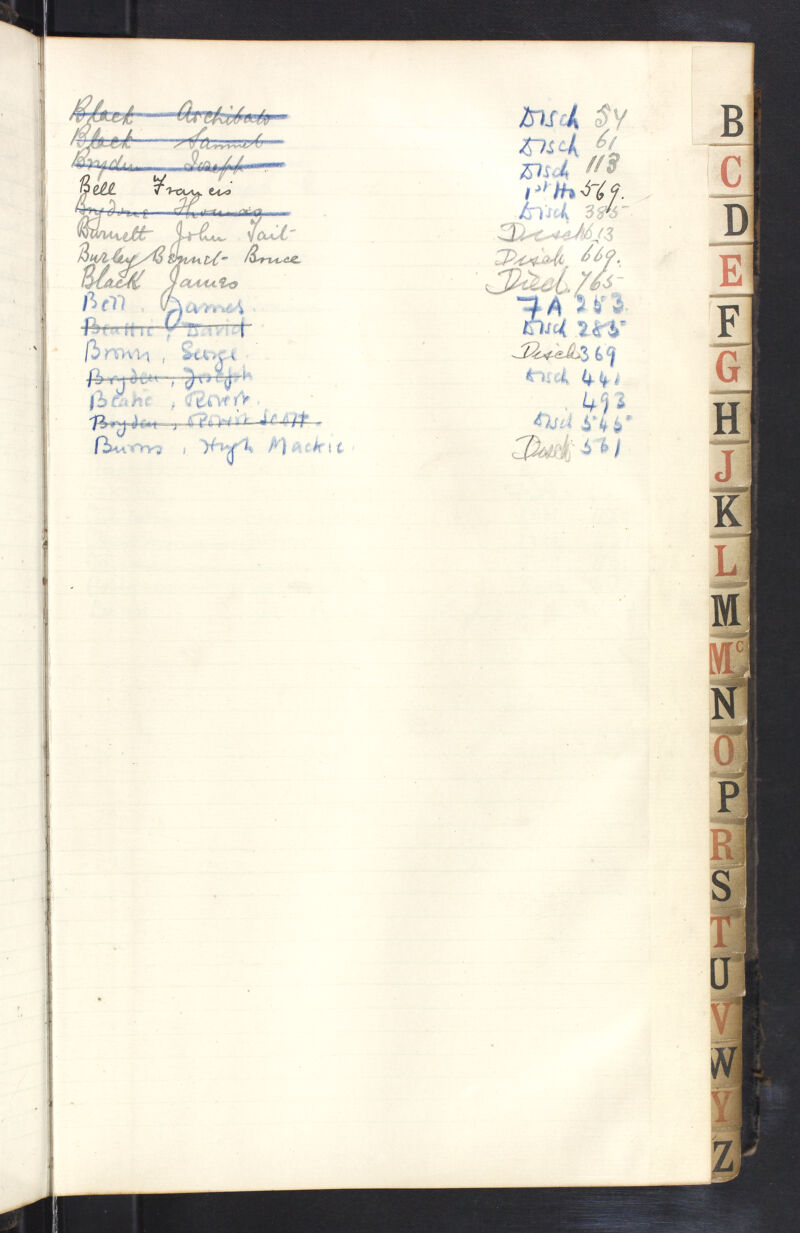 Black Archibald Disch 54
Black Samuel Disch 61
Bryden Joseph Disch 113
Bell Francis 1st Ho 569.
Brydone Thomas Disch 385
Burnett John Tait Disch 613
Burley Bennet Bruce Disch 669.
Black James Died. 765
Bell, James. 7A 253
Beattie, David Disch 285
Brown, George. Disch 369
Bryden, Joseph Disch 441
Beatie, Robert. 493
Bryden, Robert Scott. Disch 545
Burns, Hugh Mackie. Disch 561
B
C
D
E
F
G
H
J
K
L
M
Mc
N
O
P
R
S
T
U
V
W
Y
Z